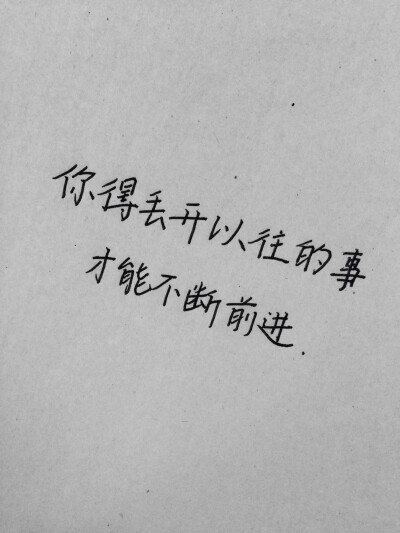 你得丢开以往的事
才能不断前进.